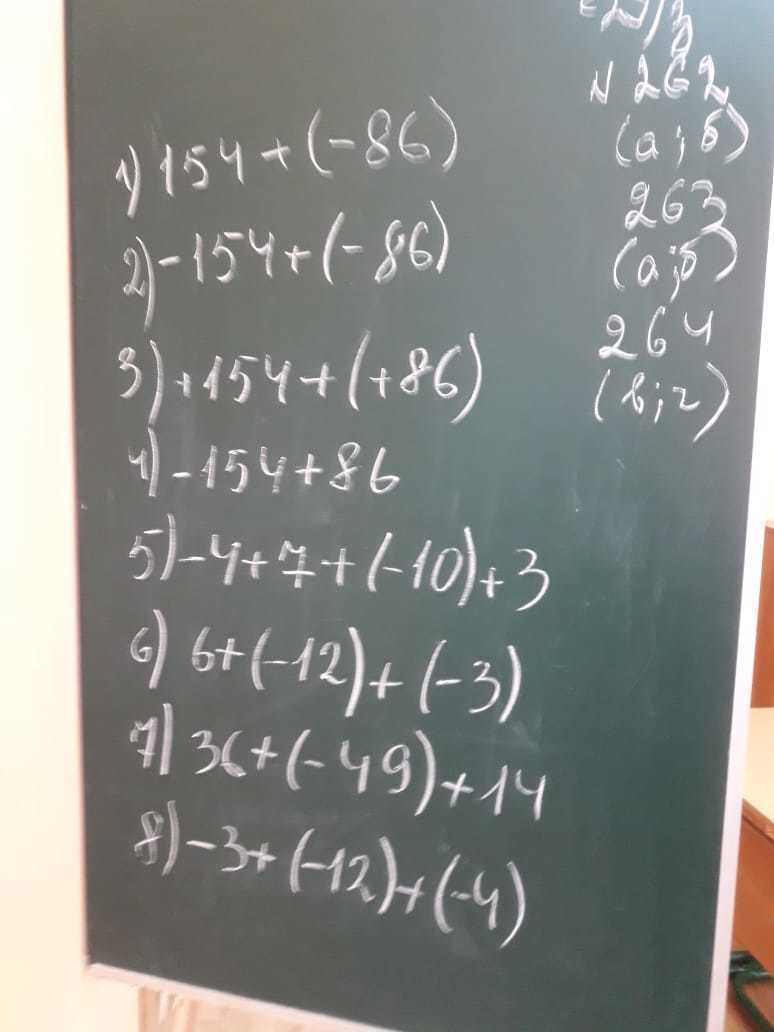 1) 154 + (-86)
2) -154 + (-86)
3) +154 + (+86)
4) -154 + 86
5) -4 + 7 + (-10) + 3
6) 6 + (-12) + (-3)
7) 36 + (-49) + 14
8) -3 + (-12) + (-4)
Д/з
N 262
(а; б)
263
(а; б)
264
(в; г)